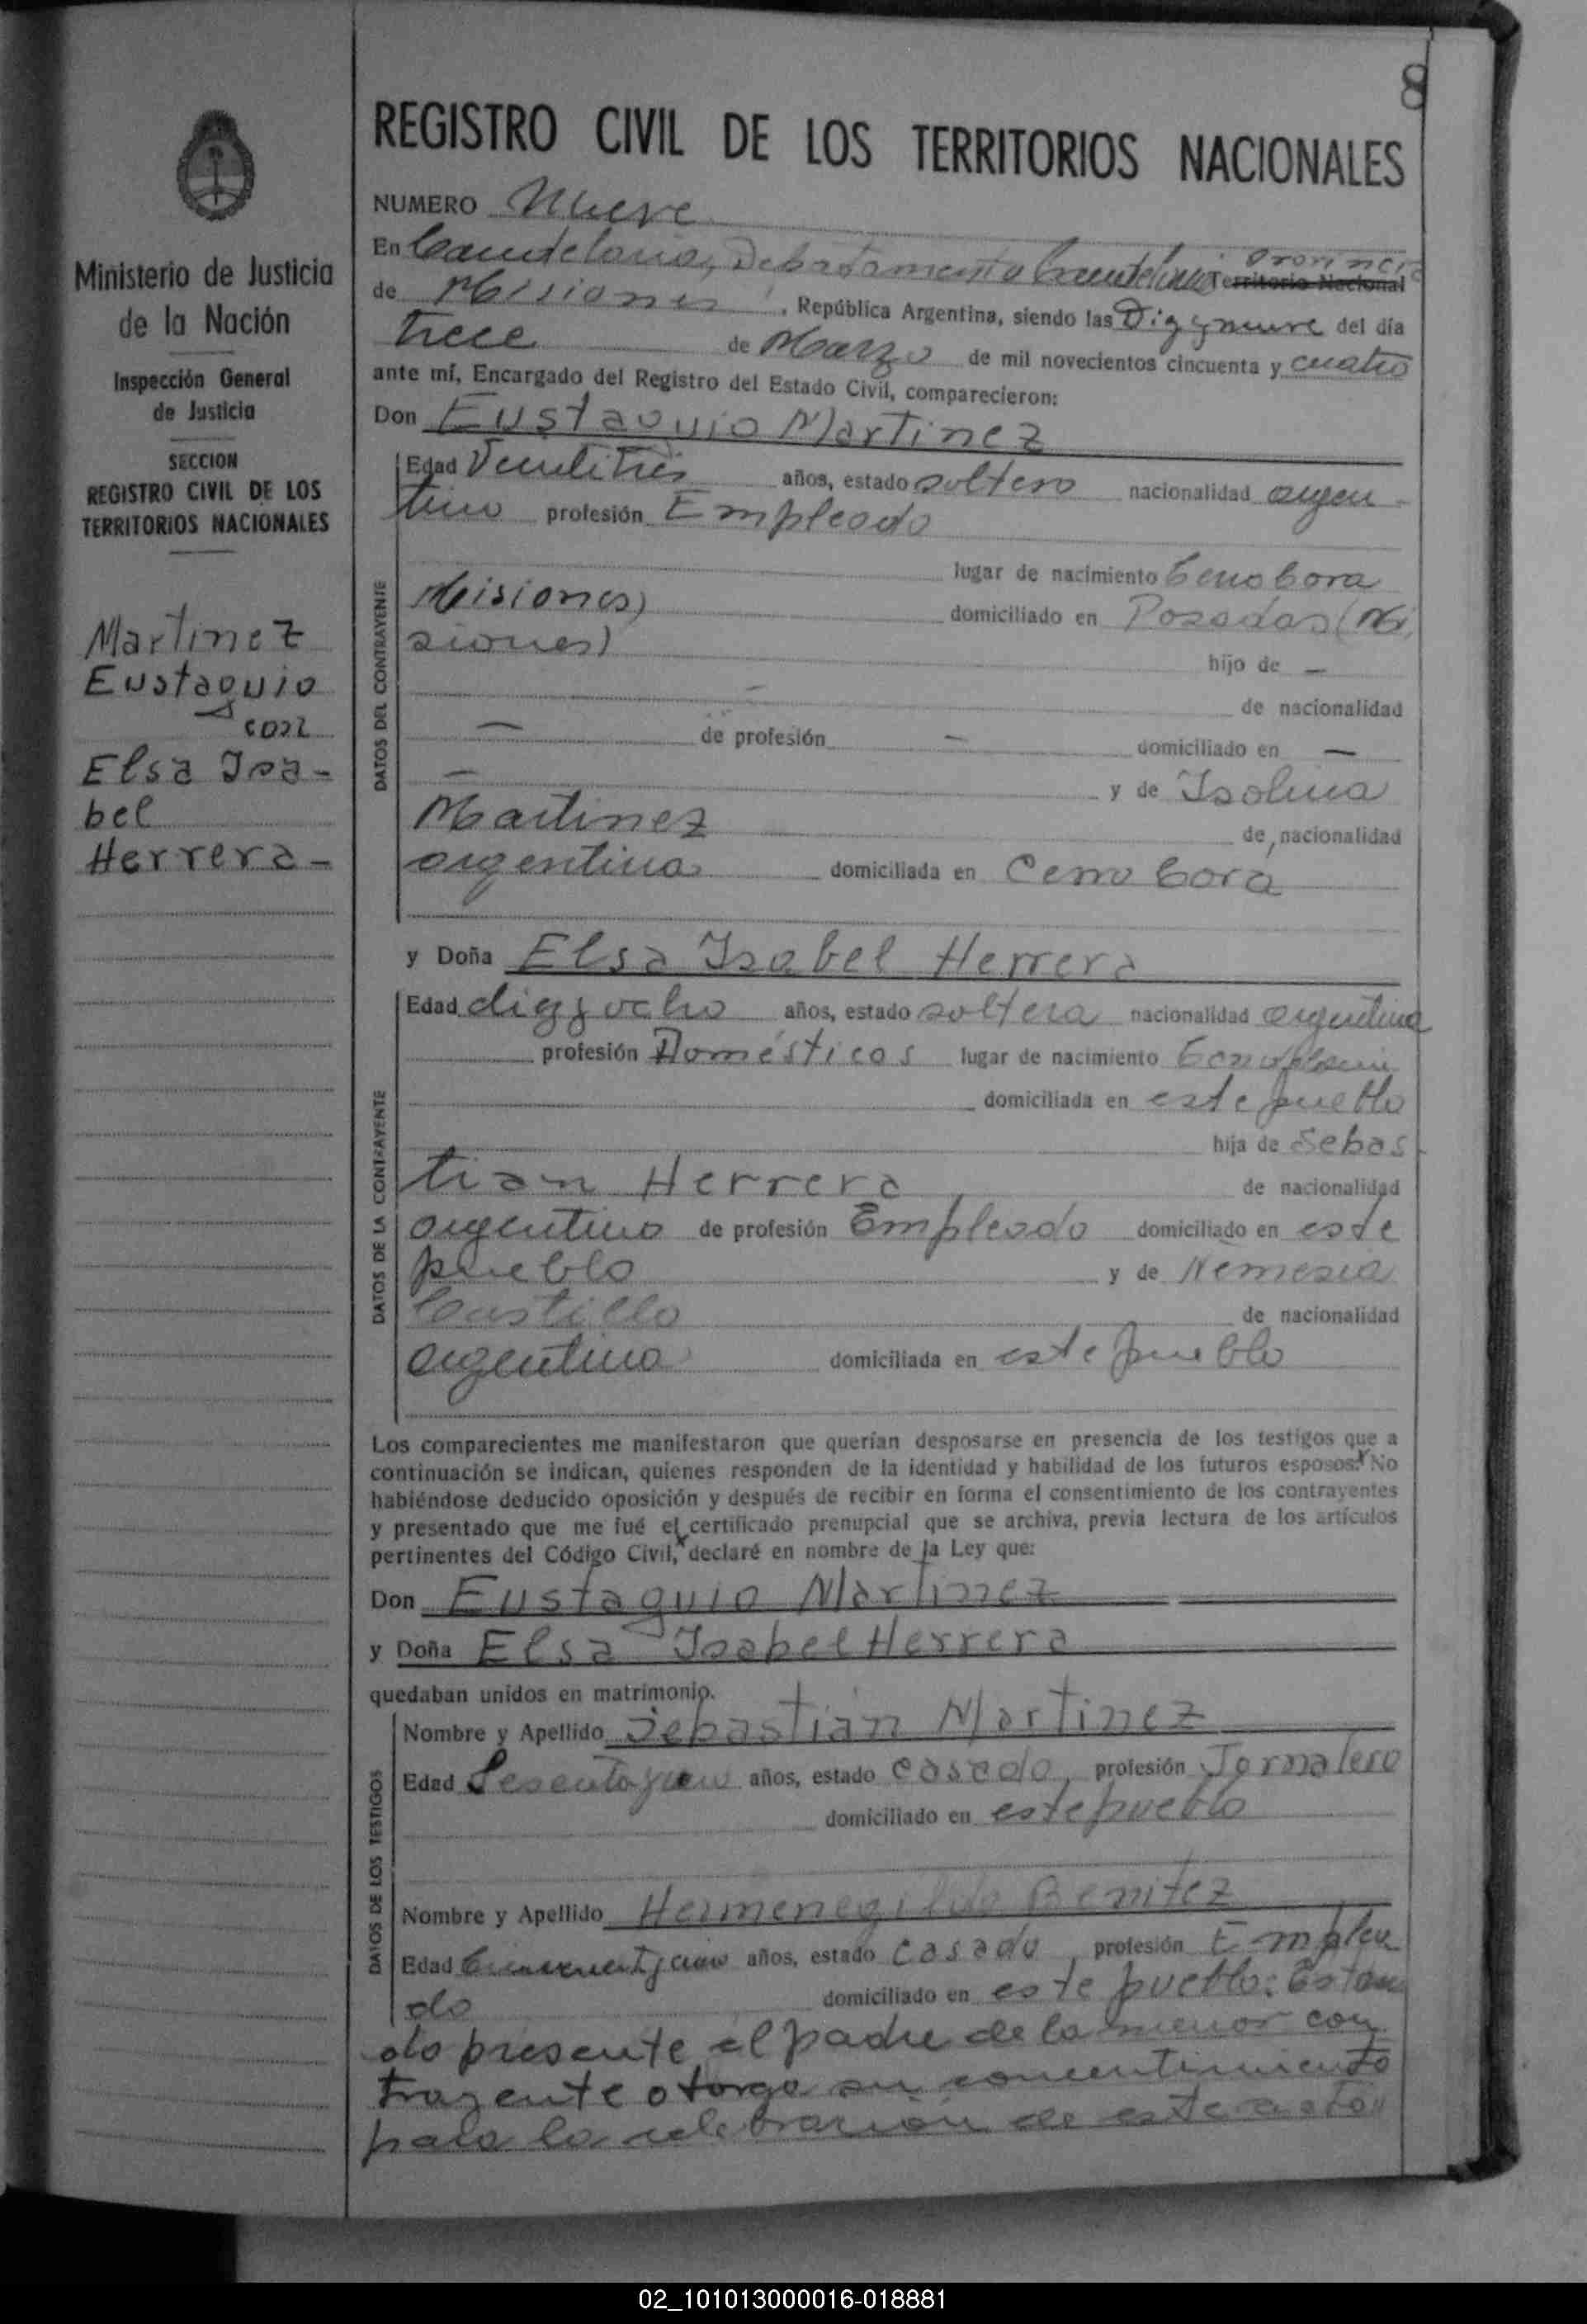 8
REGISTRO CIVIL DE LOS TERRITORIOS NACIONALES
Ministerio de Justicia
de la Nación
Inspección General
de Justicia
SECCION
REGISTRO CIVIL DE LOS
TERRITORIOS NACIONALES
Martinez
Eustaquio
con
Elsa Isa-
bel
Herrera-
NUMERO Nueve
En Candelaria, Departamento Candelaria Provincia Territorio Nacional
de Misiones, República Argentina, siendo las Diez y nueve del día
trece de Marzo de mil novecientos cincuenta y cuatro
ante mí, Encargado del Registro del Estado Civil, comparecieron:
Don Eustaquio Martinez
DATOS DEL CONTRAYENTE
Edad Veintitres años, estado soltero nacionalidad argen-
tino profesión Empleado
lugar de nacimiento Cerro Cora
Misiones) domiciliado en Posadas (Mi
siones) hijo de —
— de nacionalidad
— de profesión — domiciliado en —
— y de Isolina
Martinez de nacionalidad
argentina domiciliada en Cerro Cora
y Doña Elsa Isabel Herrera
DATOS DE LA CONTRAYENTE
Edad diez y ocho años, estado soltera nacionalidad argentina
profesión Domésticos lugar de nacimiento
domiciliada en este pueblo
hija de Sebas
tian Herrera de nacionalidad
argentino de profesión Empleado domiciliado en este
pueblo y de Nemesia
Castillo de nacionalidad
argentina domiciliada en este pueblo
Los comparecientes me manifestaron que querían desposarse en presencia de los testigos que a
continuación se indican, quienes responden de la identidad y habilidad de los futuros esposos. No
habiéndose deducido oposición y después de recibir en forma el consentimiento de los contrayentes
y presentado que me fué el certificado prenupcial que se archiva, previa lectura de los artículos
pertinentes del Código Civil, declaré en nombre de la Ley que:
Don Eustaquio Martinez
y Doña Elsa Isabel Herrera
quedaban unidos en matrimonio.
DATOS DE LOS TESTIGOS
Nombre y Apellido Sebastián Martinez
Edad años, estado casado, profesión Jornalero
domiciliado en este pueblo
Nombre y Apellido Hermenegildo Benitez
Edad años, estado casado, profesión Emplea
do domiciliado en este pueblo: Estan
do presente el padre de la menor con
trayente otorga su concentimiento
para la celebración de este acto
02_101013000016-018881